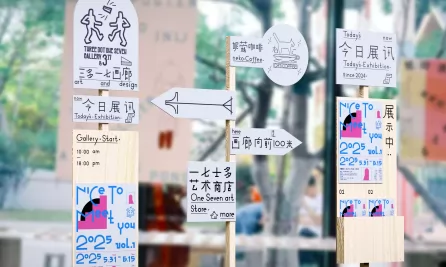 THREE DOT ONE SEVEN
GALLERY 3.17
三多一七画廊
art and design
now
今日展讯
Today's·Exhibition·
Gallery·Start·
10:00 am
18:00 pm
Nice To
meet
you
2025 vol.1
2025 5.31-8.15
neko.Coffee·
here
画廊向前100米
一七士多
艺术商店
One Seven art
Store·
more
Today's now
今日展讯
Today's·Exhibition·
since 2024·
Nice To
meet
you
2025
2025 5.31-8.15
展示中
Nice To
Nice To